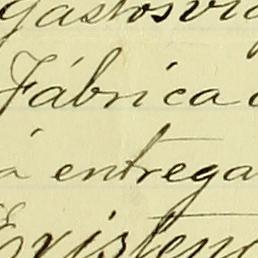 gastos vi
Fábrica
á entrega
Existenc